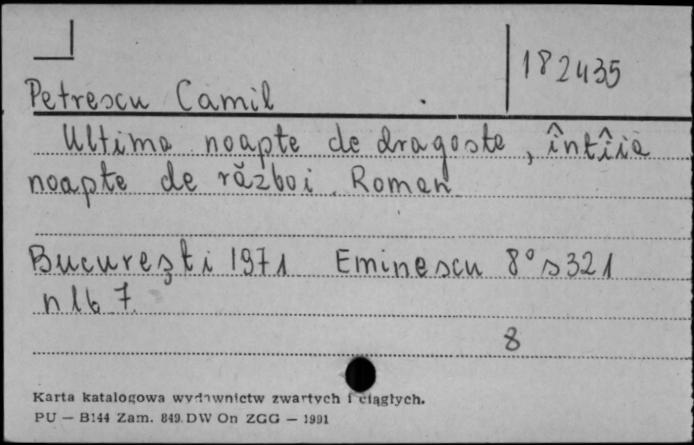 182435
Petrescu Camil
Ultima noapte de dragoste, întîia
noapte de război. Roman
București 1971 Eminescu 8° s 321
nlb 7.
8
Karta katalogowa wydawnictw zwartych i ciągłych.
PU — B144 Zam. 849. DW On ZGG — 1991